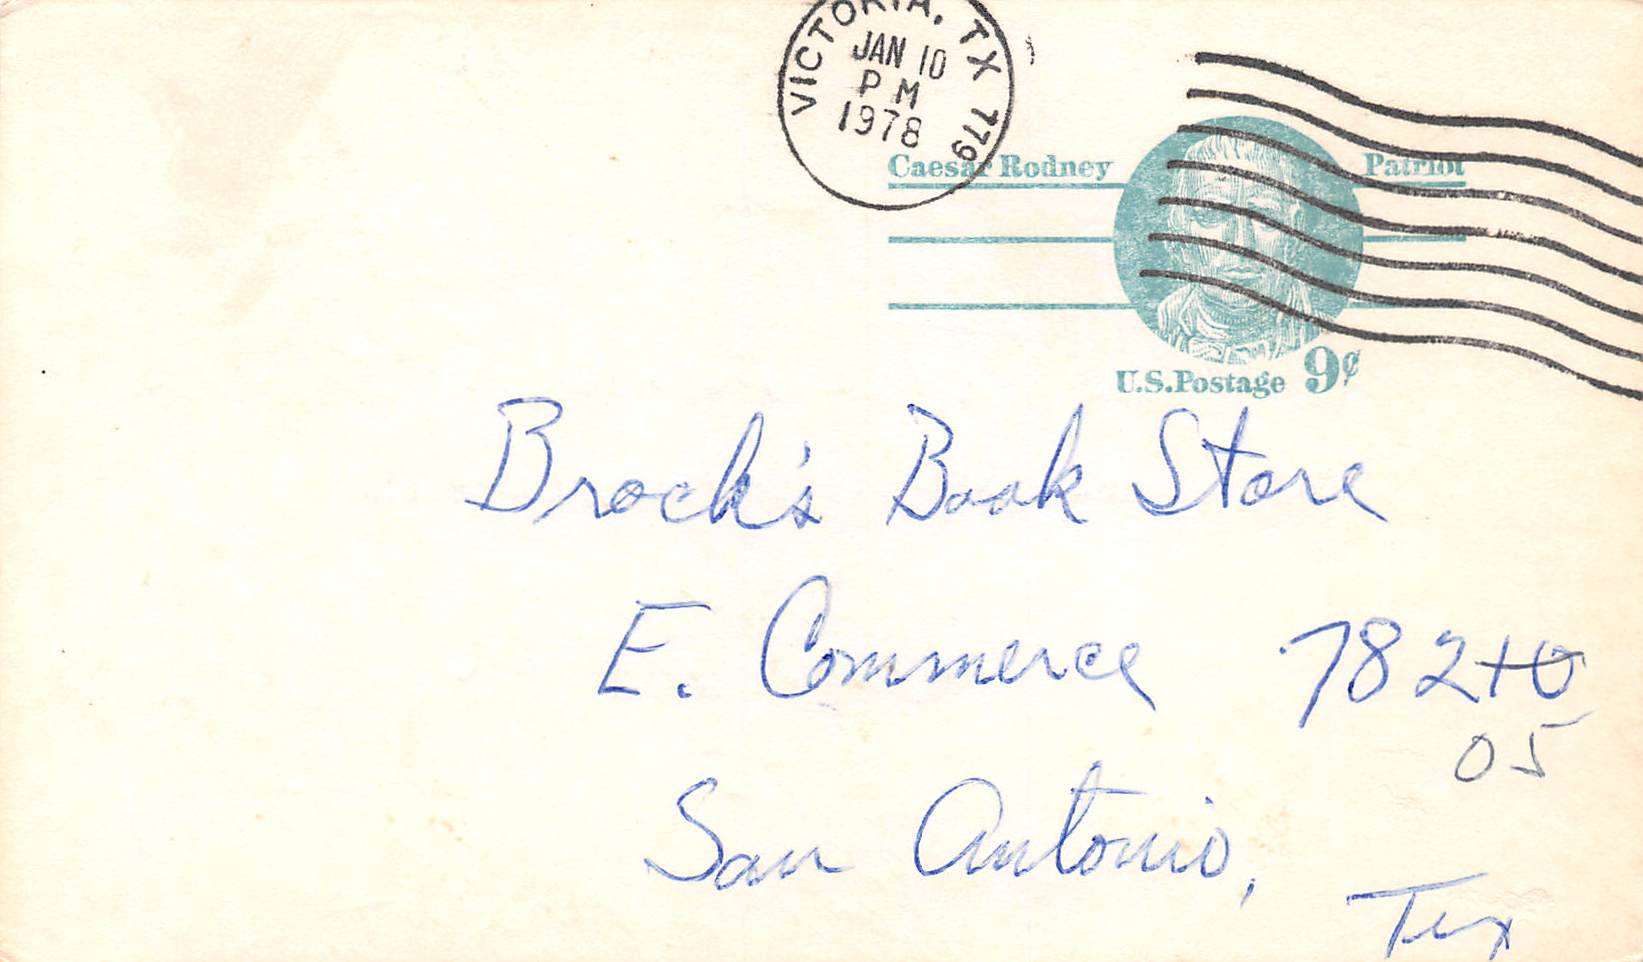 VICTORIA, TX 779
JAN 10
PM
1978
Caesar Rodney Patriot
U.S. Postage 9¢
Brock's Book Store
E. Commerce 78210
05
San Antonio,
Tex